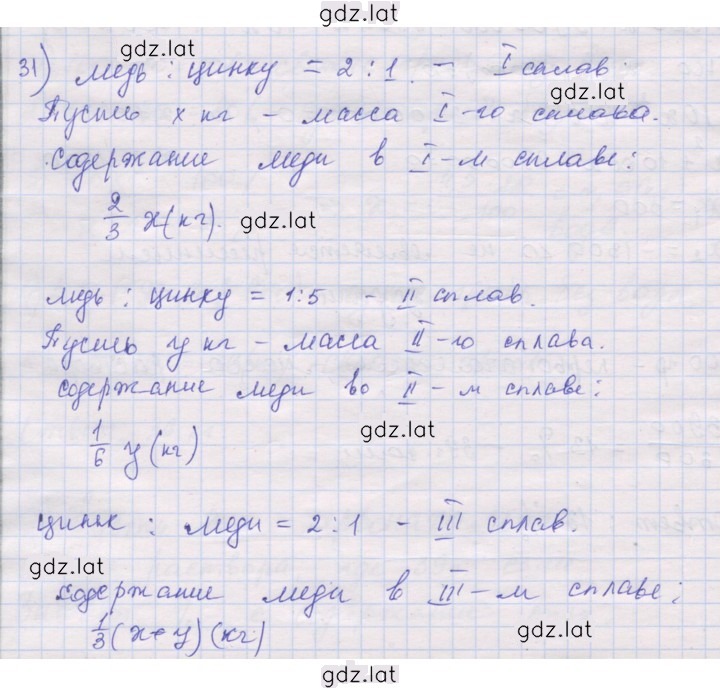 gdz.lat
gdz.lat
31) медь : цинку = 2 : 1. – I сплав.
gdz.lat
Пусть x кг – масса I-го сплава.
Содержание меди в I-м сплаве:
2/3 x (кг).
gdz.lat
медь : цинку = 1:5 – II сплав.
Пусть y кг – масса II-го сплава.
содержание меди во II-м сплаве:
gdz.lat
1/6 y (кг)
цинк : меди = 2 : 1 – III сплав.
gdz.lat
содержание меди в III-м сплаве:
1/3 (x+y) (кг)
gdz.lat
gdz.lat